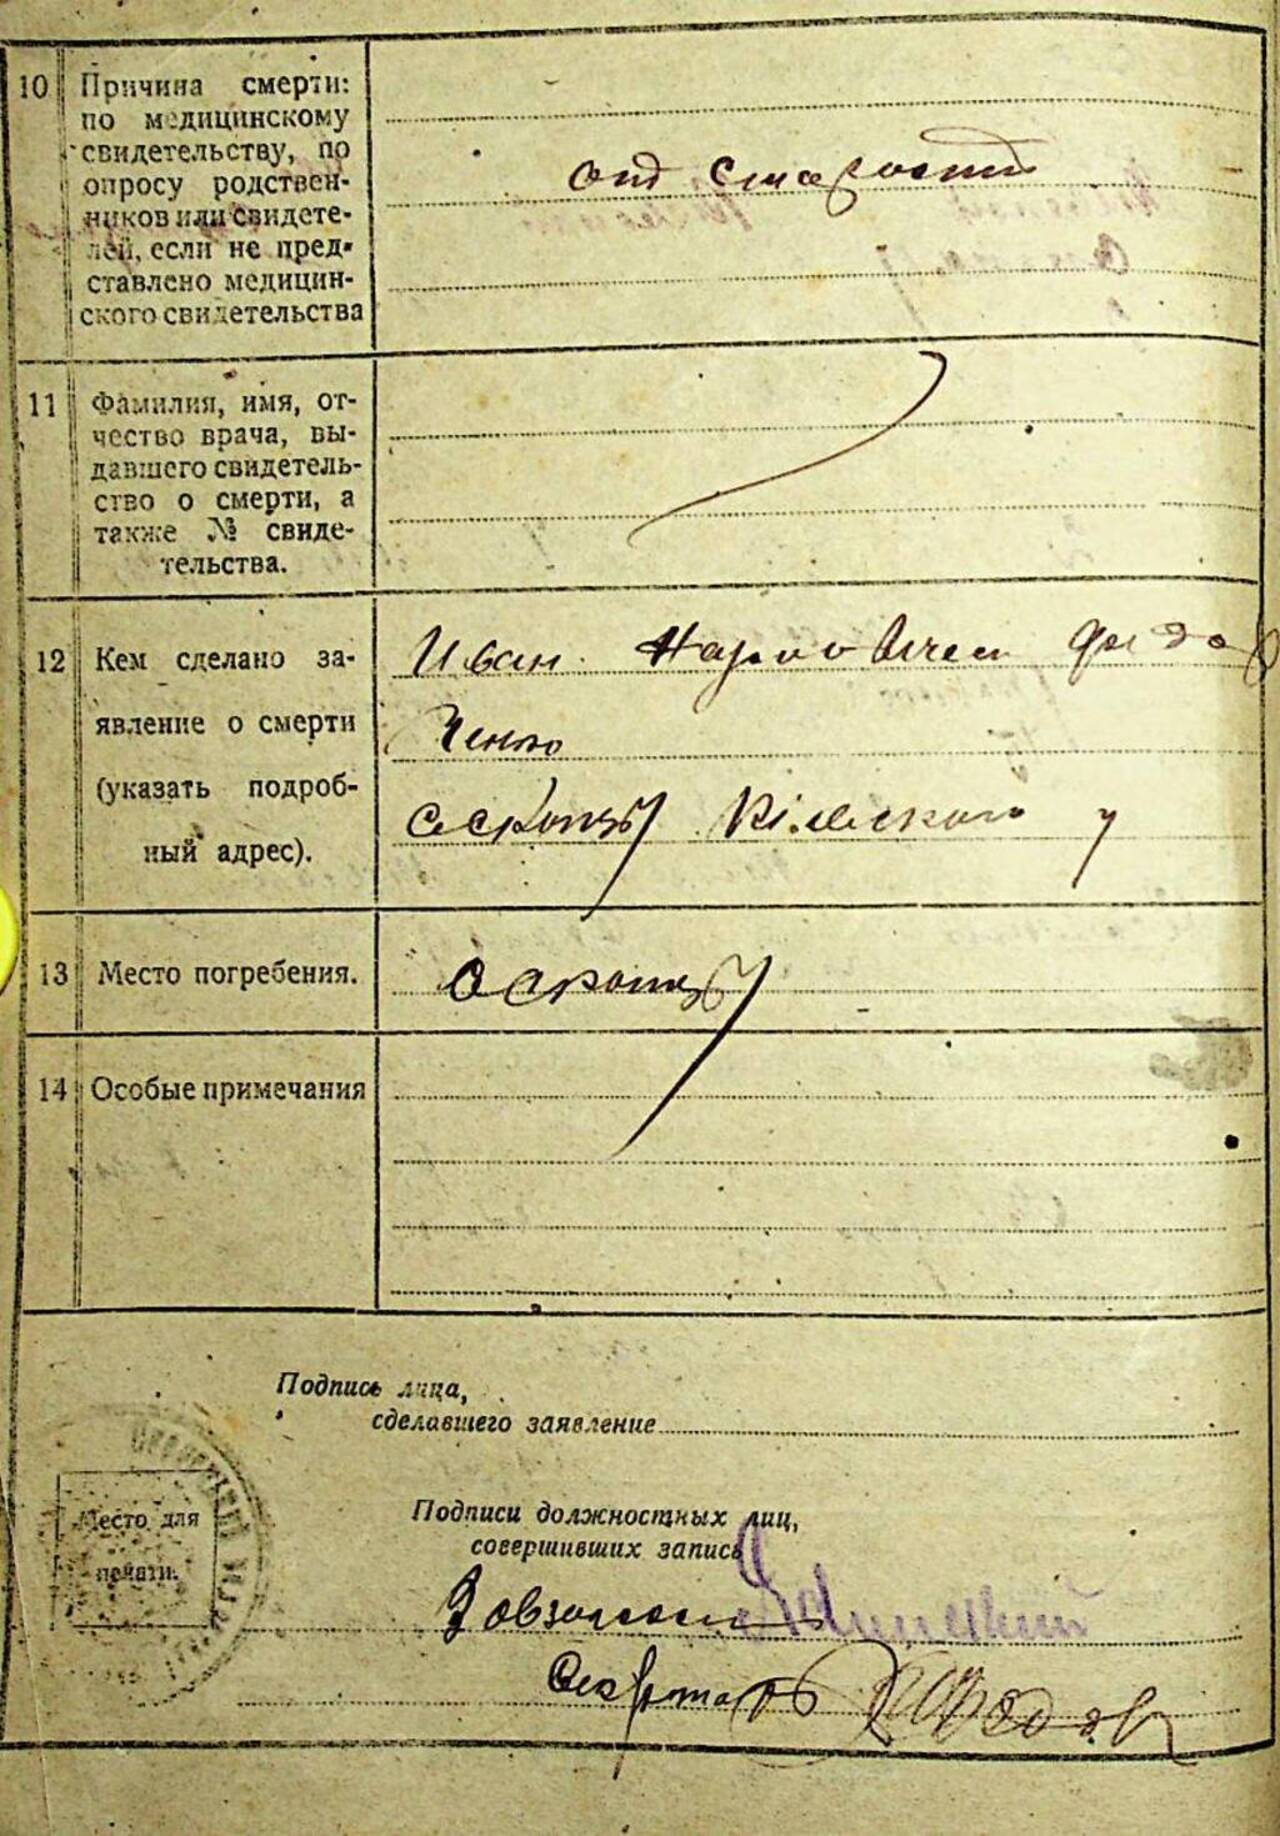 10 Причина смерти:
по медицинскому
свидетельству, по
опросу родствен-
ников или свидете-
лей, если не пред-
ставлено медицин-
ского свидетельства
от старости
11 Фамилия, имя, от-
чество врача, вы-
давшего свидетель-
ство о смерти, а
также № свиде-
тельства.
12 Кем сделано за-
явление о смерти
(указать подроб-
ный адрес).
Иван
ченко
13 Место погребения.
14 Особые примечания
Подпись лица,
сделавшего заявление
Место для
печати.
Подписи должностных лиц,
совершивших запись
Секретарь